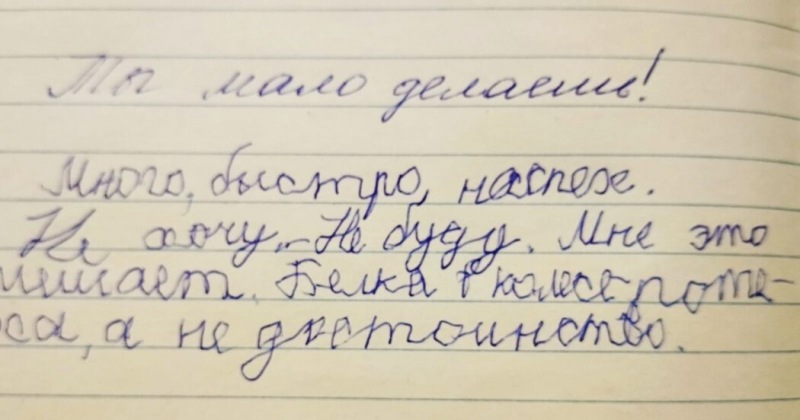 Ты мало делаешь!
Много, быстро, наспех.
Не хочу. Не буду. Мне это
мешает. Белка в колесе поте-
а не достоинство.